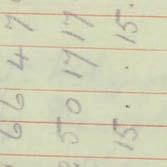 66 4 7
50 17 17
15 . . 15.